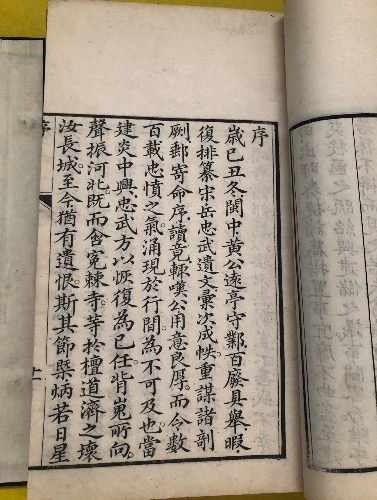 序
歲己丑冬閩中黃公遠亭守鄴百廢具舉暇
復排纂宋岳忠武遺文彙次成帙。重謀諸剞
劂郵寄命序讀竟輒嘆公用意良厚。而令數
百載忠憤之氣。涌現於行間。為不可及也。當
建炎中興忠武方以恢復為己任背嵬所向。
聲振河北。既而含冤棘寺。等於檀道濟之壞
汝長城。至今猶有遺恨。斯其節槩炳若日星
序
上